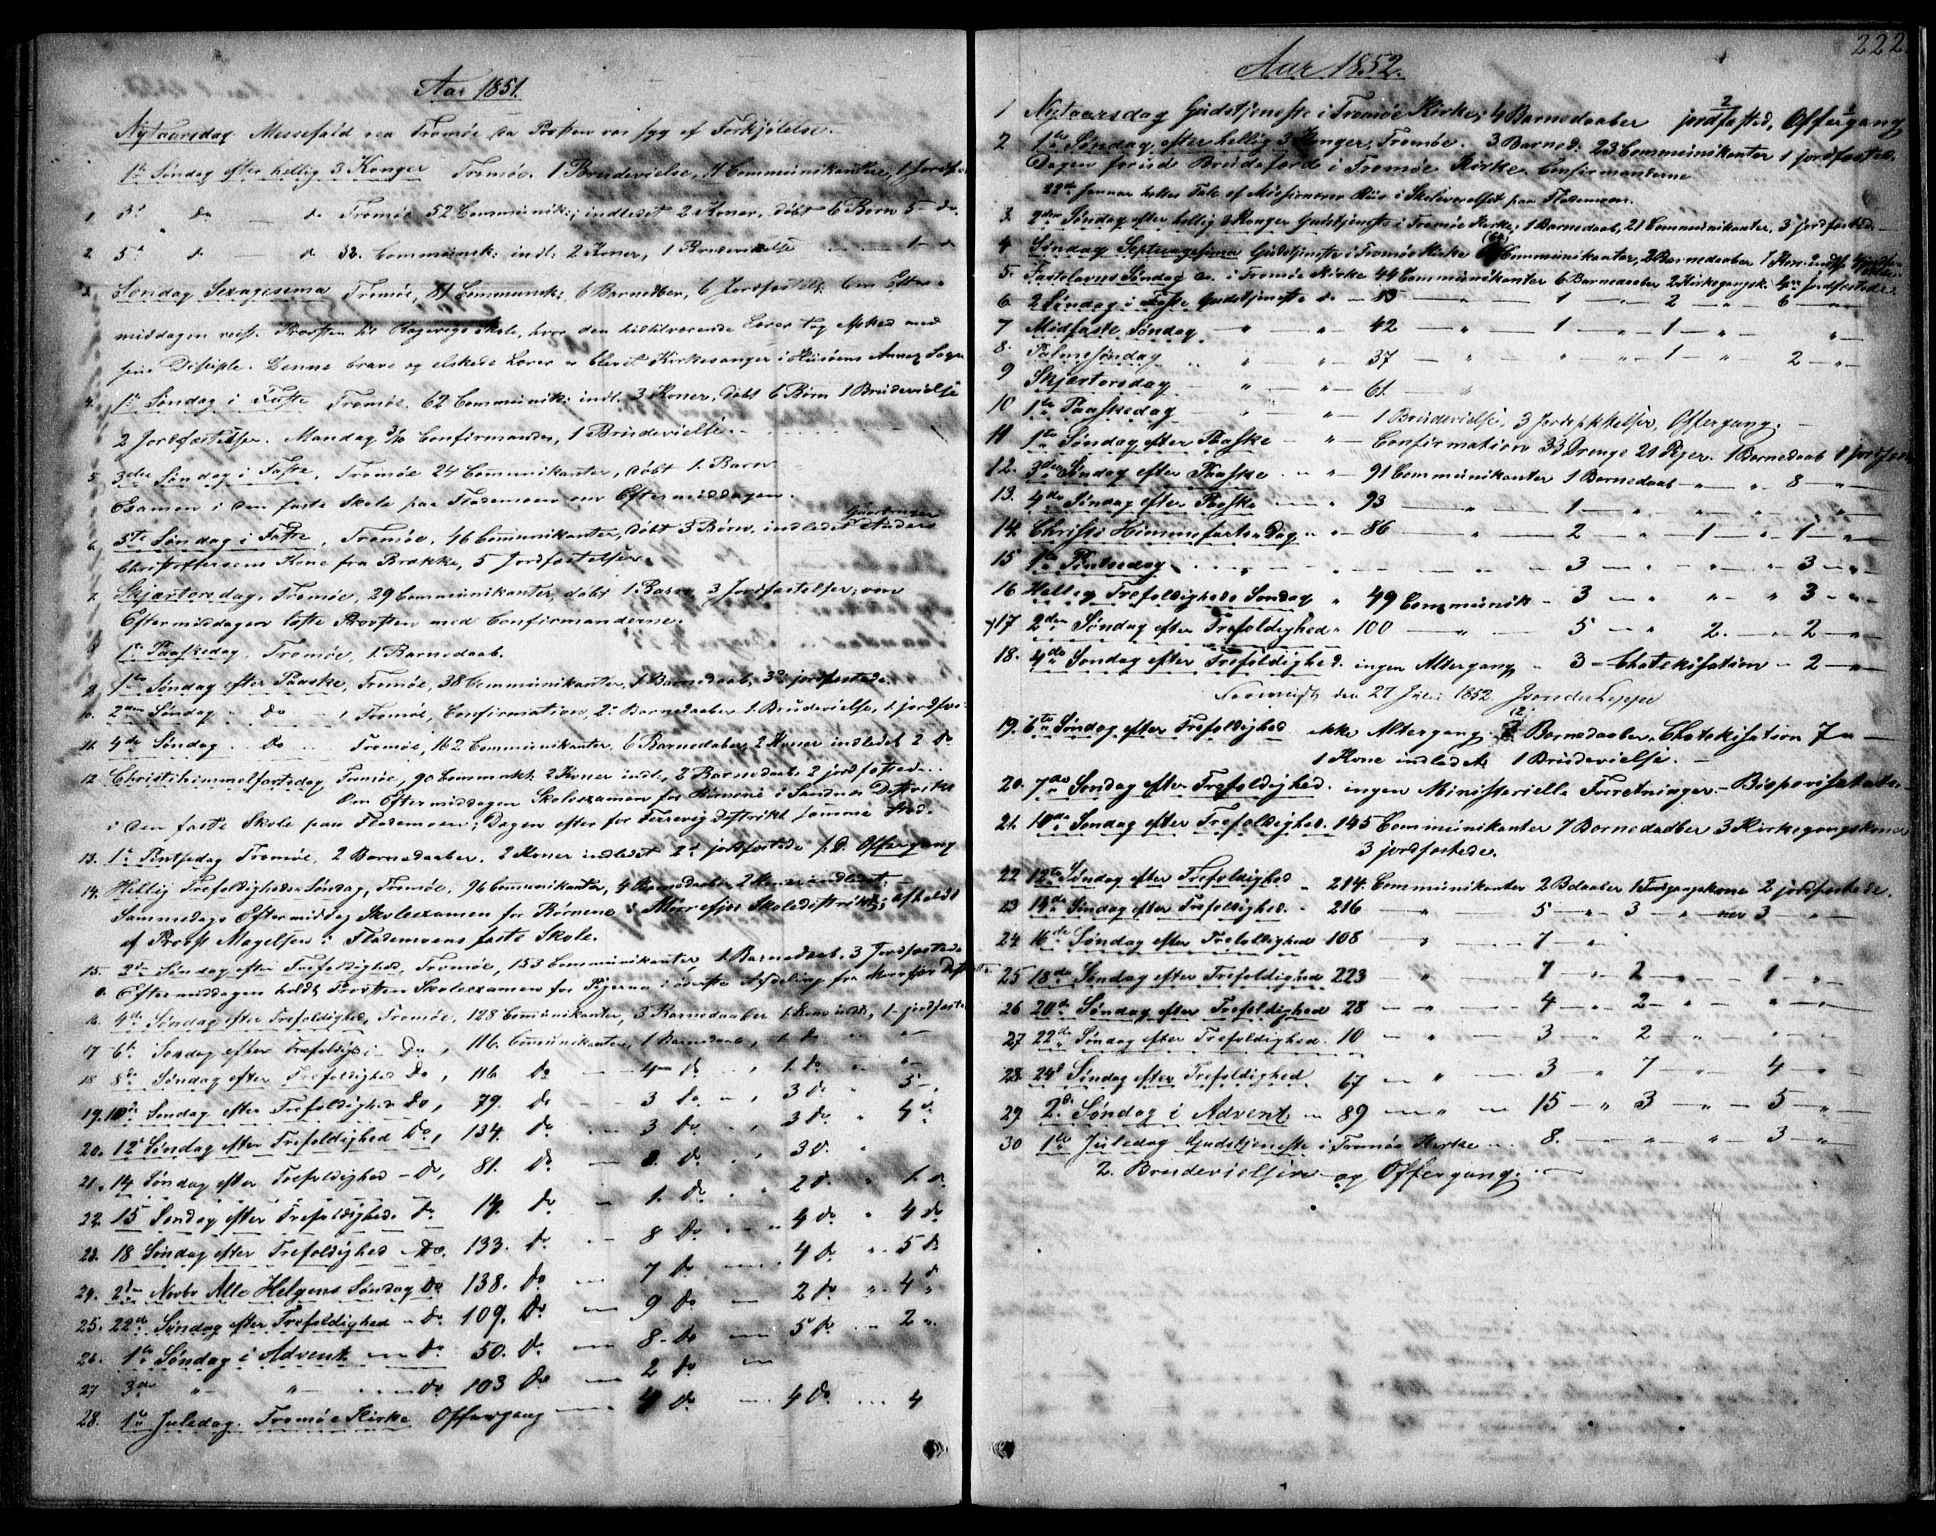 Aar 1851.
Nytaarsdag Messefald ved Tromøe da Provsten var syg af Forkjølelse.
1ste Søndag efter hellig 3 Konger Tromøe. 1 Brudevielse, 11 Communikanter, 1 Jordfæs
1 3d do — do Tromøe 52 Communik: indledet 2 Koner, døbt 6 Børn 5 do.
2. 5t do — do 32. Communik: indl: 2 Koner, 1 Brudevielse 1 — do
3 Søndag Sexagesima Tromøe, 81 Communik: 6 Barnedber, 6 Jordfæstelse: Om Efter-
middagen reiste Provsten til Skole, hvor den hidtilværende Lærer tog Afsked med
sine Disciple. Denne brave og elskede Lærer er blevet Kirkesanger i Annex Sogn
4. 1ste Søndag i Faste Tromøe. 62 Communik: indl: 3 Koner, døbt 6 Børn 1 Brudevielse
2 Jordfæstelse. Mandag 3/10 Confirmander, 1 Brudevielse.
5 3die Søndag i Faste, Tromøe 24 Communikanter, døbt 1. Barn
Examen i den faste Skole paa Flademoen om Eftermiddagen.
6. 5te Søndag i Faste, Tromøe, 46 Communikanter, døbt 3 Børn, indledet Gaardbruger Anders
Christophersens Kone fra Brække, 5 Jordfæstelser.
7. Skjærtorsdag, Tromøe, 29 Communikanter, døbt 1 Barn, 3 Jordfæstelser, om
Eftermiddagen læste Provsten med Confirmanderne.
8 1ste Paaskedag, Tromøe, 1. Barnedaab.
9. 1ste Søndag efter Paaske, Tromøe, 38 Communikanter, 1 Barnedaab, 3 jordfæstede.
10. 2den Søndag do — , Tromøe, Confirmation, 2 Barnedaaber 1. Brudevielse, 1. jordfæs
11. 4de Søndag . do .. Tromøe, 162 Communikanter, 6 Barnedaaber, 2 Koner indledet 2 do
12 Christihimmelfartsdag, Tromøe, 90 Commukt. 2 Koner indl, 2 Barnedaabe 2 jordfæstede..
Om Eftermiddagen Skoleexamen for Børnene i Sandnæs Distrikt
i den faste Skole paa Flademoen, Dagen efter for Færrevig Distrikt samme Sted.
13. 1ste Pintsedag Tromøe, 2 Barnedaaber. 2 Koner indledet 2 jordfæstede f.D. Offergang
14. Hellig Trefoldigheds Søndag, Tromøe, 96 Communikanter, 4 Barnedaaber, 2 Koner indledet.
Sammedags Eftermiddag Skoleexamen for Børnene i Morrefjær Skoledistrikt, afholdt
af Provst Magelsen i Flademoens faste Skole.
15. 2den Søndag efter Trefoldighed, Tromøe, 153 Communikanter, 1 Barnedaab. 3 Jordfæstede
Eftermiddagen holdt Provsten Skoleexamen for Pigerne i øverste Afdeling fra Morrefjær Distr
16. 4de Søndag efter Trefoldighed, Tromøe, 128 Communikanter, 3 Barnedaaber 1 Kone indl, 1 jordfæste
17 6te Søndag efter Trefoldigh — Do, 116. Communikanter, 1 Barnedaab, 1. do
18 8de Søndag efter Trefoldighed Do, 116 do — 4 do , 1. do
19. 10de Søndag efter Trefoldighed Do, 79. do — 3 do , 3 do 5 —
20. 12 Søndag efter Trefoldighed Do, 134. do 3 do , 3 do 4 do
21. 14 Søndag efter Trefoldighed — Do, 81. do — 2. do 3 do.
22. 15 Søndag efter Trefoldighed. Do 14. do — 1. do 2 do 1. do
23. 18 Søndag efter Trefoldighed — Do. 133. do — 8 do 4 do 4 do
24. 2den Novbr Alle Helgens Søndag Do 138. do — 7 do 4 do 5 do
25. 22de Søndag efter Trefoldighed — do 109. do — 9 do 2 do 4 do
26. 1ste Søndag i Advent — do 50. do — 8. do 5 do 2 "
27 3de " " — do 103 do — 2 do —
28. 1ste Juledag. Tromøe Kirke Offergang — 4 do — 4 do ... 4
222.
Aar 1852.
1 Nytaarsdag Gudstjeneste i Tromøe Kirke, 4 Barnedaaber 2 jordfæsted, Offergang
2 1ste Søndag efter hellig 3 Konger, Tromøe. 3 Barned: 23 Communikanter 1 jordfæstel.
Dagen forud Brudefærd i Tromøe Kirke. Confirmanterne
22de Januar holdtes Tale af Missionair i Skoleværelset paa Flademoen.
3. 2den Søndag efter hellig 3 Konger Gudstjeneste i Tromøe Kirke, 1 Barnedaab, 21 Communikanter, 3 jordfæstede. —
4 Søndag Septuagesima Gudstjeneste i Tromøe Kirke Communikanter, 2 Barnedaaber 1 Kone indl.
5. Fastelavns Søndag do. i Tromøe Kirke 44 Communikanter 6 Barnedaaber 2 Kirkegangsk: 4 Jordfæstede:
6 2 Søndag i Faste Gudstjeneste do — 83 — " — 1 " 2 " 6 — " —
7 Midfaste Søndag " " 42 — " — 1 — " — 1 — " "
8. Palmesøndag " " 37 — " " 1 — " 2 — " —
9 Skjærtorsdag — " — " — 61. — "
10 1ste Paaskedag — " — 1 Brudevielse, 3 Jordfæstelser, Offergang. —
11 1ste Søndag efter Paaske — " — Confirmation 33 Drenge 21 Piger. 1 Barnedaab 1 jordfæst
12. 3die Søndag efter Paaske " 91 Communikanter 1 Barnedaab — " " 8 — " —
13. 4de Søndag efter Paaske " 93 — " — 1 — " — " — " "
14. Christi Himmelfarts Dag " 86 — " — 2 — " — 1 — " — 1 — " —
15 1ste Pintsedag . . . " — " — 3 — " — " — " 3 — " —
16 Hellig Trefoldigheds Søndag " 49 Communik — 3 — " " — " 3 — " —
17 2den Søndag efter Trefoldighed " 100 — " — 5 — " 2. — " 2 — " —
18. 4de Søndag efter Trefoldighed. ingen Altergang — 3 — Chatekisation — 2 — " —
den 27 Juli 1852.
19. 6te Søndag efter Trefoldighed ikke Altergang (2) Barnedaaber, Chatekisation 7 " —
1 Kone indledet 1 Brudevielse. —
20. 7de Søndag efter Trefoldighed. ingen Ministerielle Forretninger. — Bispevisitats.
21. 10de Søndag efter Trefoldighed. 145 Communikanter 7 Barnedaaber 3 Kirkegangskoner
3 jordfæstede.
22 12te Søndag efter Trefoldighed " 214. Communikanter 2 Bdaaber 1 Kirkegangskone 2 jordfæstede.
23 14de Søndag efter Trefoldighed. " 216 — " — 5 — " 3 — " 3 — "
24. 16de Søndag efter Trefoldighed 108 — " — 7 — "
25 18de Søndag efter Trefoldighed 223 " 7 " 2 — " 1 — "
26 20de Søndag efter Trefoldighed 28 — " 4 — " 2 — " " — " —
27 22de Søndag efter Trefoldighed. 10 — " 3 " 2 — " " — "
28. 24d Søndag efter Trefoldighed 67 — " — 3 — " 7 " 4 — "
29. 2d. Søndag i Advent — " 89 — " — 15 — " 3 — " 5 — " —
30 1ste Juledag Gudstjeneste i Tromøe Kirke — 8. — " " " 3 — "
2. Brudevielser og Offergang. —